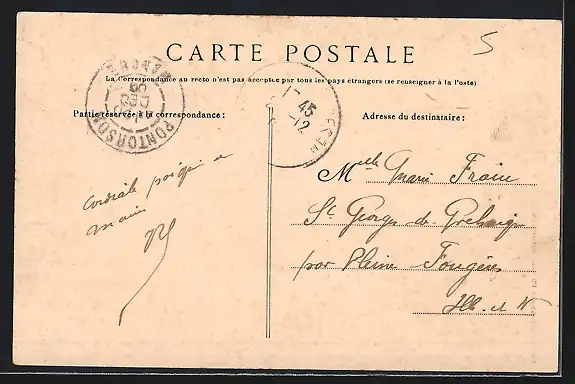 5
CARTE POSTALE
La Correspondance au recto n'est pas acceptée par tous les pays étrangers (se renseigner à la Poste)
Partie réservée à la correspondance :
Adresse du destinataire :
PONTORSON
DEC
1- 45
-12
Cordiale poignée de
main
Melle Marie Frain
St Georges de Gréhaigne
par Pleine Fougères
Ille-et-V